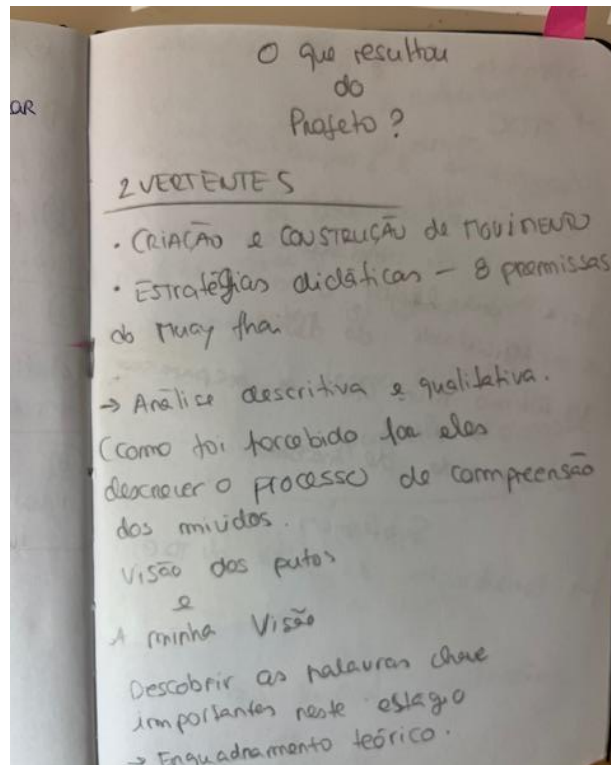 AR
O que resultou
do
Projeto?
2 VERTENTES
• CRIAÇÃO e CONSTRUÇÃO de MOVIMENTO
• Estratégias didáticas – 8 premissas
do Muay thai
→ Análise descritiva e qualitativa.
(como foi percebido por eles
descrever o processo de compreensão
dos miúdos.
Visão dos putos
e
A minha Visão
Descobrir as palavras chave
importantes neste estágio
→ Enquadramento teórico.